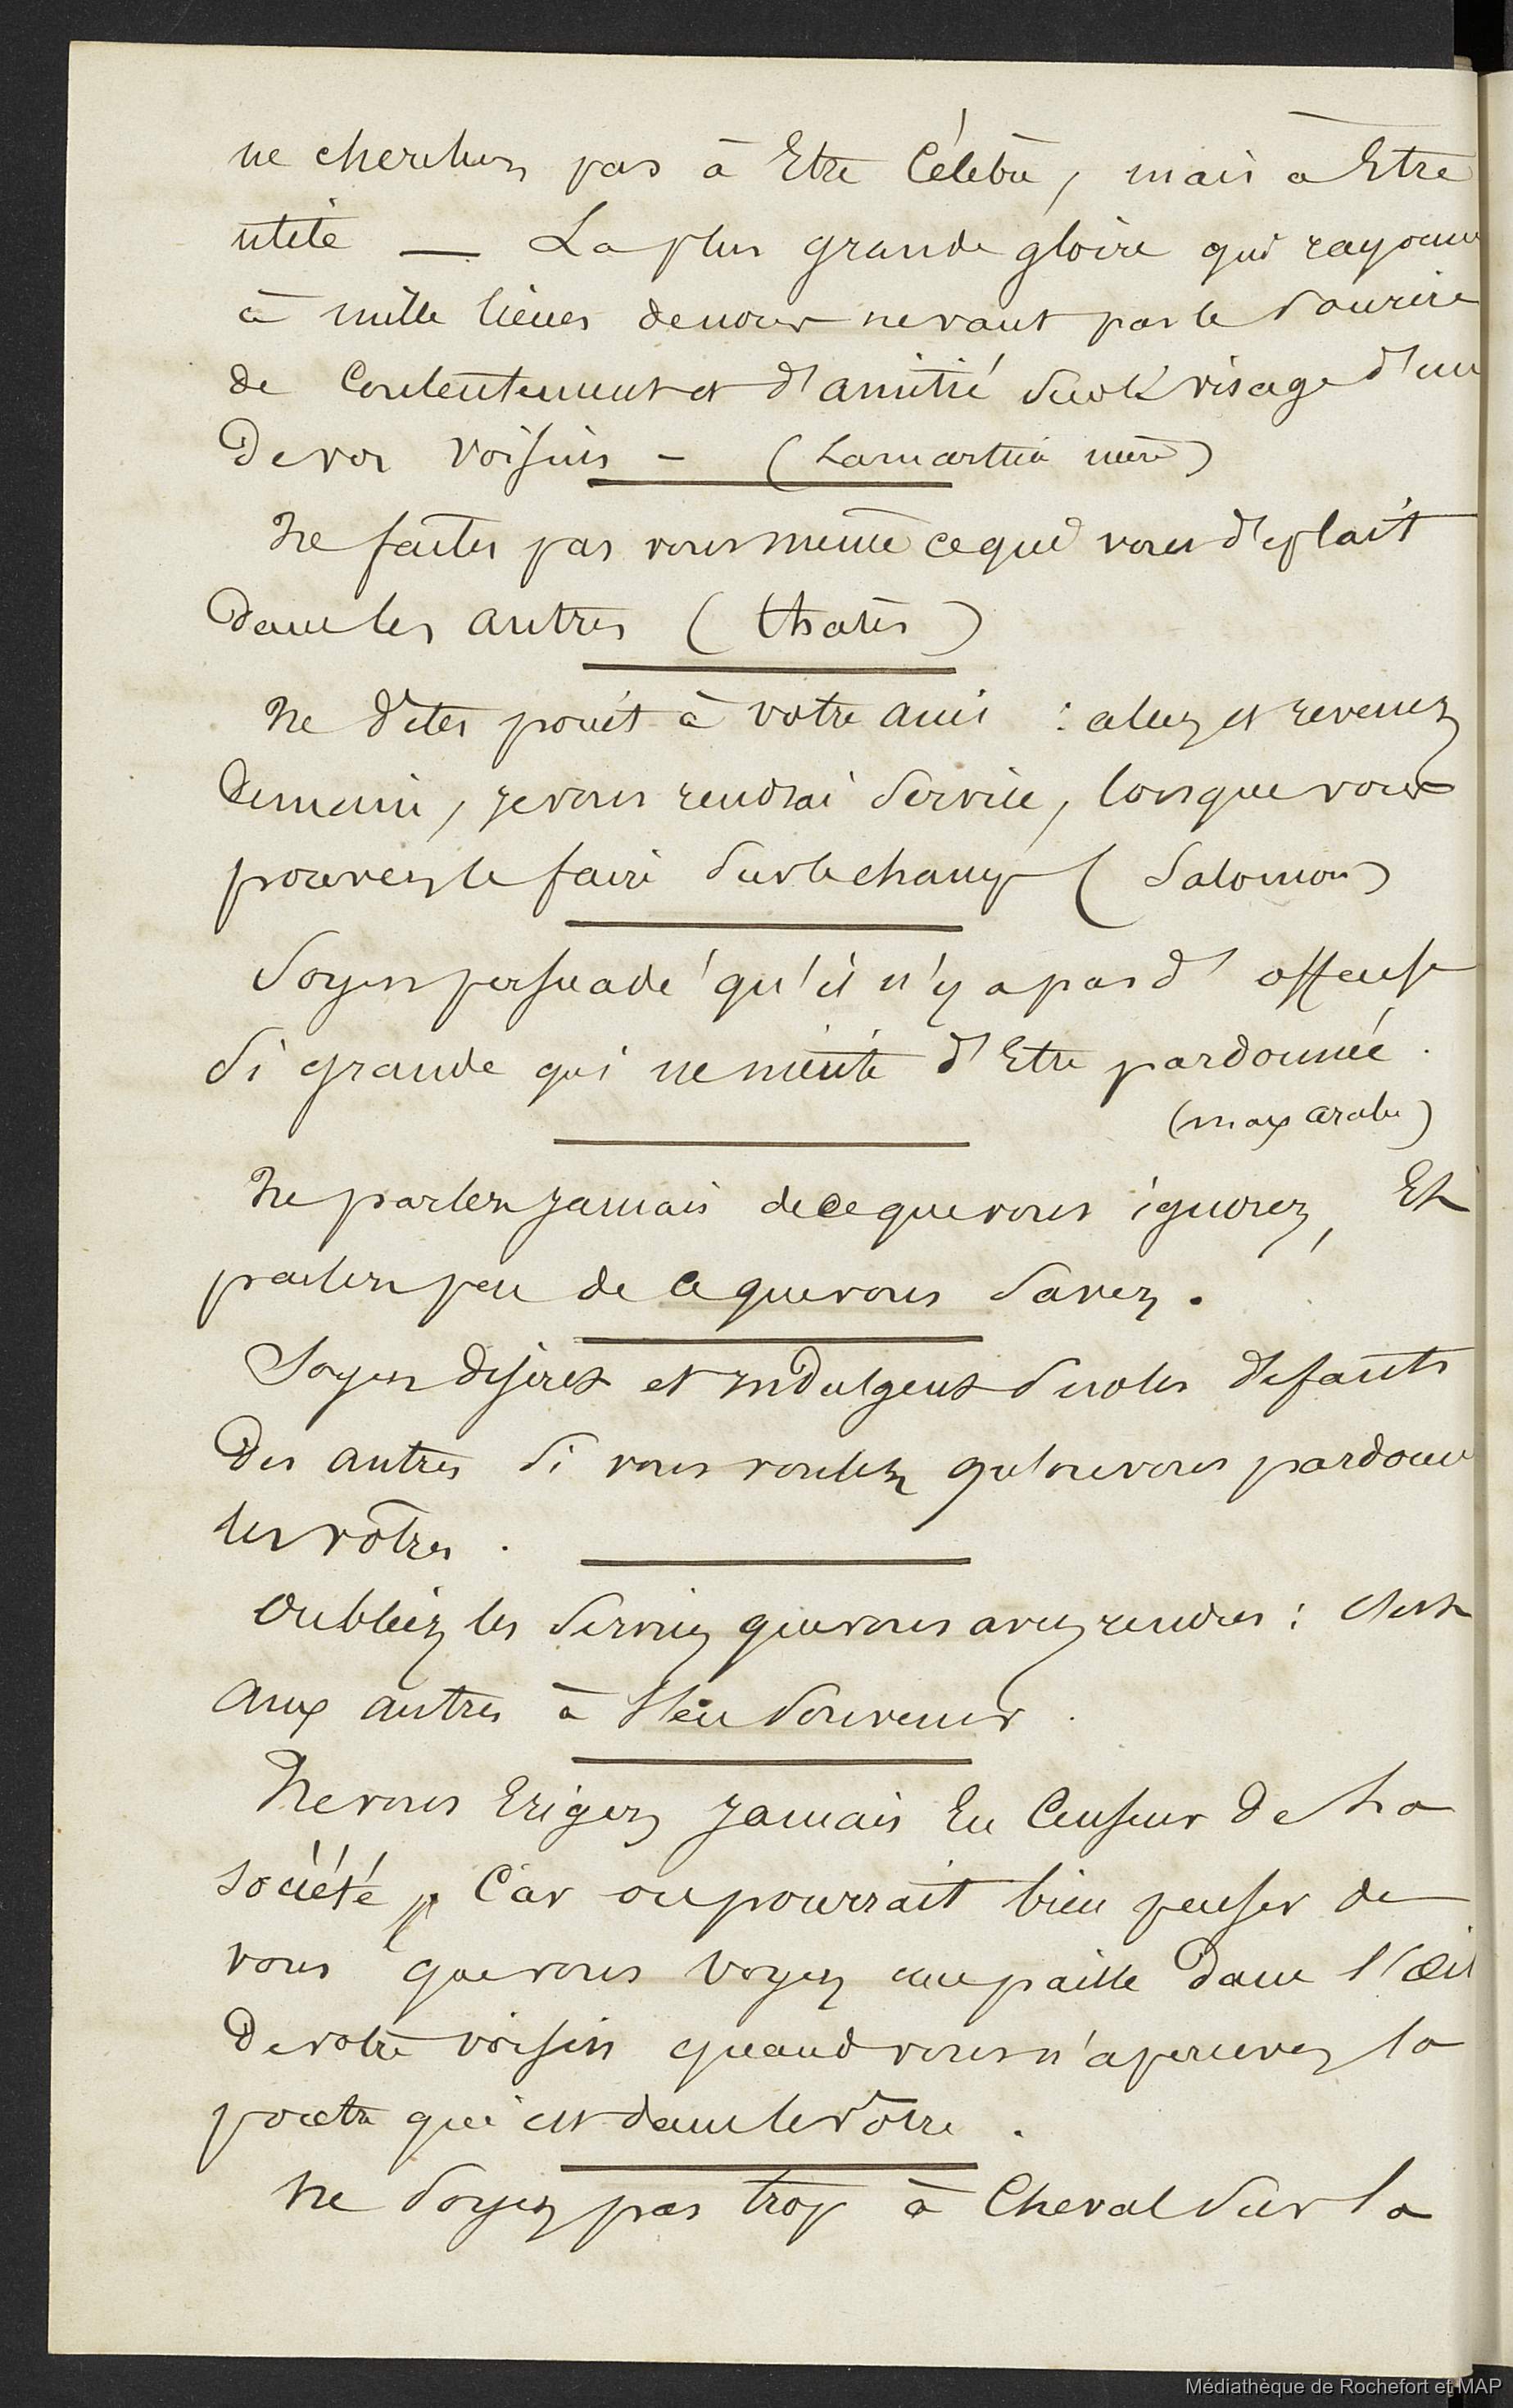 ne cherchez pas à Etre Célèbre, mais à Etre
utile — La plus grande gloire qui rayonne
à mille lieues de nous ne vaut pas le sourire
de contentement et d'amitié sur le visage d'un
De vos voisins - (Lamartine mère)
Ne faites pas vous même ce qui vous déplait
Dans les autres (thalès)
Ne dites point à votre ami : allez et revenez
demain, je vous rendrai service, lorsque vous
pouvez le faire sur le champ (Salomon)
Soyez persuadé qu'il n'y a pas d'offense
si grande qui ne mérite d'Etre pardonnée.
(max arabe)
Ne parlez jamais de ce que vous ignorez, Et
parlez peu de ce que vous savez.
Soyez discret et indulgent sur les défauts
Des autres si vous voulez qu'on vous pardonne
les vôtres.
Oubliez les services que vous avez rendus : c'est
aux autres à s'en souvenir.
Ne vous Erigez jamais En Censeur de la
société, Car on pourrait bien penser de
vous que vous voyez une paille Dans l'œil
De votre voisin quand vous n'apercevez la
poutre qui est dans le vôtre.
Ne soyez pas trop à Cheval sur la
Médiathèque de Rochefort et MAP